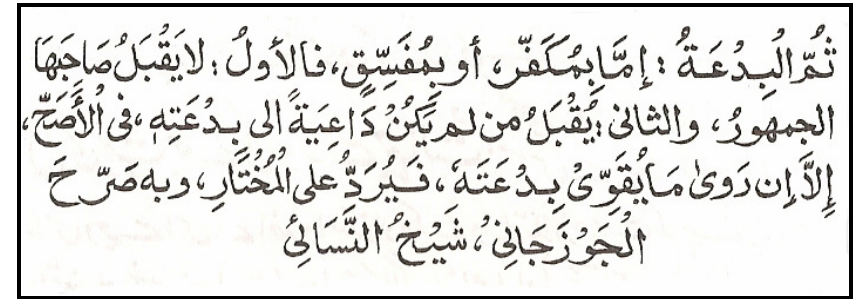 ثُمَّ الْبِدْعَةُ : إِمَّا بِمُكَفِّرٍ، أو بِمُفَسِّقٍ، فالأولُ : لا يَقْبَلُ صَاحِبَهَا
الجمهورُ، والثاني : يُقْبَلُ من لم يَكُنْ دَاعِيَةً الى بِدْعَتِهِ، فى الْأَصَحِّ،
إِلاَّ إن رَوىٰ مَا يُقَوِّىْ بِدْعَتَهُ، فَيُرَدُّ على الْمُخْتَارِ، وبه صَرَّحَ
الْجَوْزَجَانِىْ، شَيْخُ النَّسَائِىْ